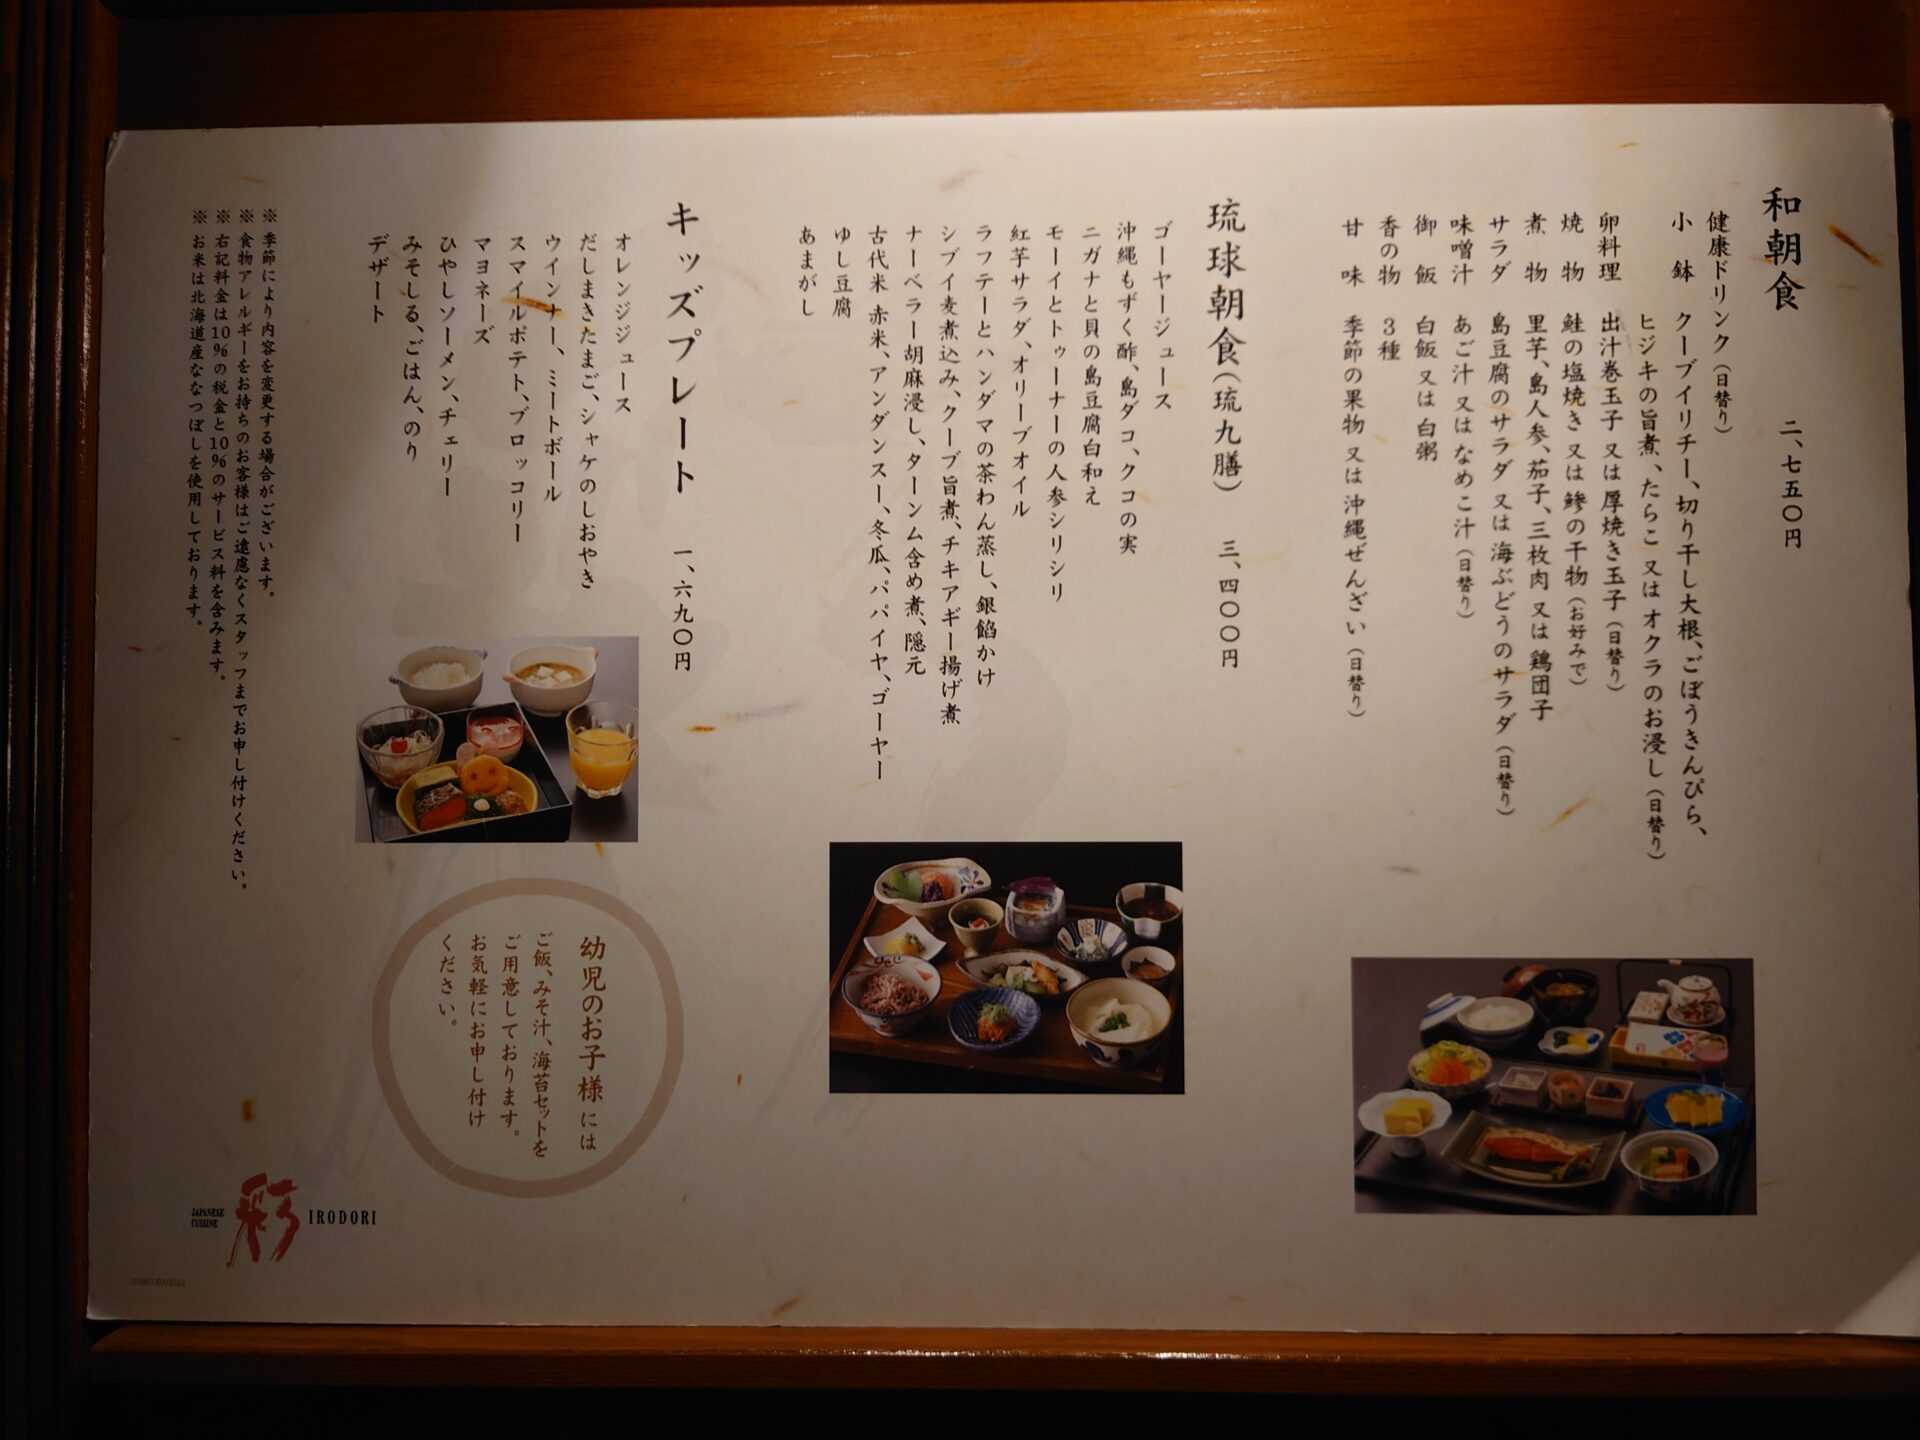 和朝食 二、七五〇円
健康ドリンク（日替り）
小鉢 クーブイリチー、切り干し大根、ごぼうきんぴら、
ヒジキの旨煮、たらこ 又は オクラのお浸し（日替り）
卵料理 出汁巻玉子 又は 厚焼き玉子（日替り）
焼物 鮭の塩焼き 又は 鯵の干物（お好みで）
煮物 里芋、島人参、茄子、三枚肉 又は 鶏団子
サラダ 島豆腐のサラダ 又は 海ぶどうのサラダ（日替り）
味噌汁 あご汁 又は なめこ汁（日替り）
御飯 白飯 又は 白粥
香の物 3種
甘味 季節の果物 又は 沖縄ぜんざい（日替り）
琉球朝食（琉九膳） 三、四〇〇円
ゴーヤージュース
沖縄もずく酢、島ダコ、クコの実
ニガナと貝の島豆腐白和え
モーイとトゥーナーの人参シリシリ
紅芋サラダ、オリーブオイル
ラフテーとハンダマの茶わん蒸し、銀餡かけ
シブイ麦煮込み、クーブ旨煮、チキアギー揚げ煮
ナーベラー胡麻浸し、ターンム含め煮、隠元
古代米 赤米、アンダンスー、冬瓜、パパイヤ、ゴーヤー
ゆし豆腐
あまがし
キッズプレート 一、六九〇円
オレンジジュース
だしまきたまご、シャケのしおやき
ウインナー、ミートボール
スマイルポテト、ブロッコリー
マヨネーズ
ひやしソーメン、チェリー
みそしる、ごはん、のり
デザート
※ 季節により内容を変更する場合がございます。
※ 食物アレルギーをお持ちのお客様はご遠慮なくスタッフまでお申し付けください。
※ 右記料金は10%の税金と10%のサービス料を含みます。
※ お米は北海道産ななつぼしを使用しております。
幼児のお子様には
ご飯、みそ汁、海苔セットを
ご用意しております。
お気軽にお申し付け
ください。
JAPANESE
CUISINE
彩 IRODORI